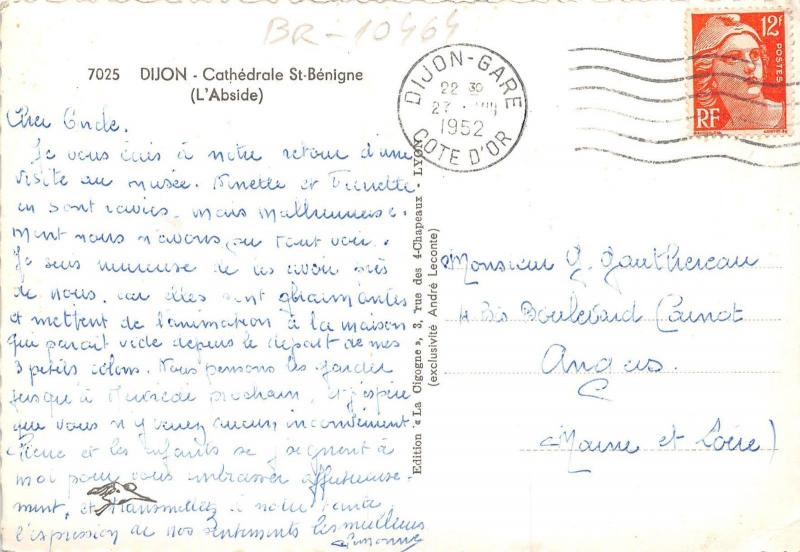 BR-10464
7025 DIJON - Cathédrale St-Bénigne
(L'Abside)
DIJON-GARE
22 30
27 - VIII
1952
COTE D'OR
12F
POSTES
RF
Cher Oncle.
Je vous écris à notre retour d'une
visite au musée. Ninette et
en sont ravies, mais malheureuse-
ment nous n'avons pu tout voir.
Je suis heureuse de les avoir près
de nous, car elles sont charmantes
et mettent de l'animation à la maison
qui parait vide depuis le départ de mes
3 petits colons. Nous pensons les garder
jusqu'à Mercredi prochain, et j'espère
que vous n'y voyez aucun inconvénient.
Pierre et les enfants se joignent à
moi pour vous embrasser affectueuse-
ment, et transmettez à notre tante
l'expression de nos sentiments les meilleurs
Edition « La Cigogne », 3, rue des 4-Chapeaux - LYON
(exclusivité André Leconte)
Monsieur G. Gauthereau
4 bis Boulevard Carnot
Angers
(Maine et Loire)